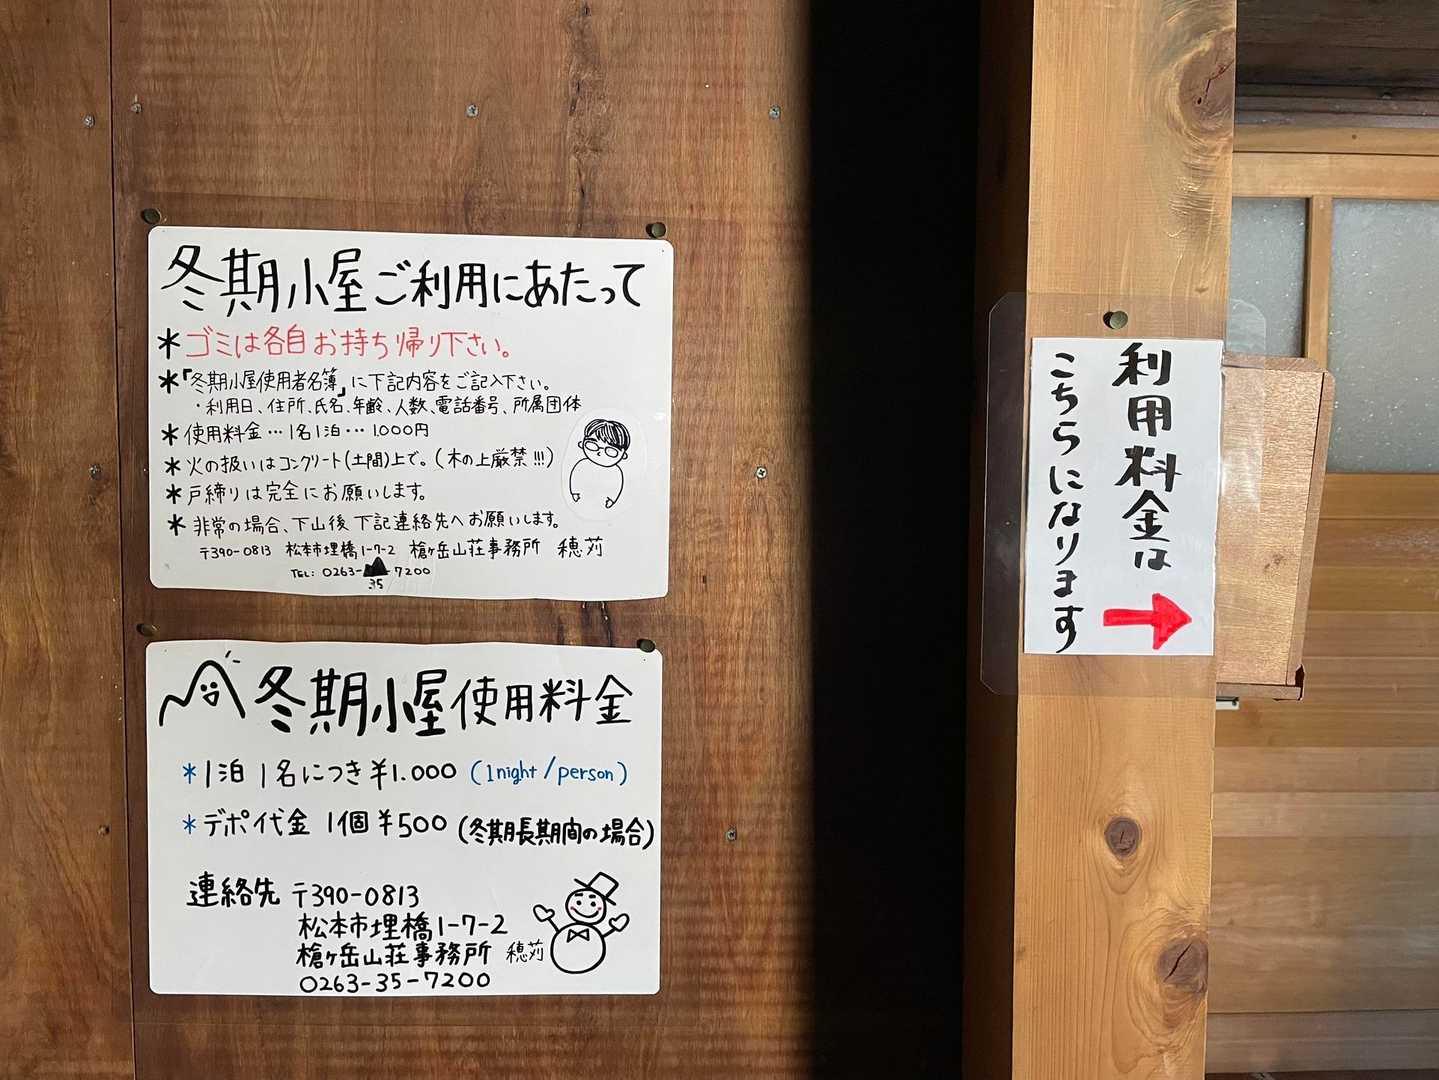 冬期小屋ご利用にあたって
*ゴミは各自お持ち帰り下さい。
*「冬期小屋使用者名簿」に下記内容をご記入下さい。
・利用日、住所、氏名、年齢、人数、電話番号、所属団体
*使用料金…1名1泊…1.000円
*火の扱いはコンクリート(土間)上で。(木の上厳禁!!!)
*戸締りは完全にお願いします。
*非常の場合、下山後下記連絡先へお願いします。
〒390-0813 松本市埋橋1-7-2 槍ヶ岳山荘事務所 穂苅
TEL: 0263-35-7200
冬期小屋使用料金
*1泊1名につき¥1.000 (1night/person)
*デポ代金 1個¥500 (冬期長期間の場合)
連絡先 〒390-0813
松本市埋橋1-7-2
槍ヶ岳山荘事務所 穂苅
0263-35-7200
利用料金は
こちらになります